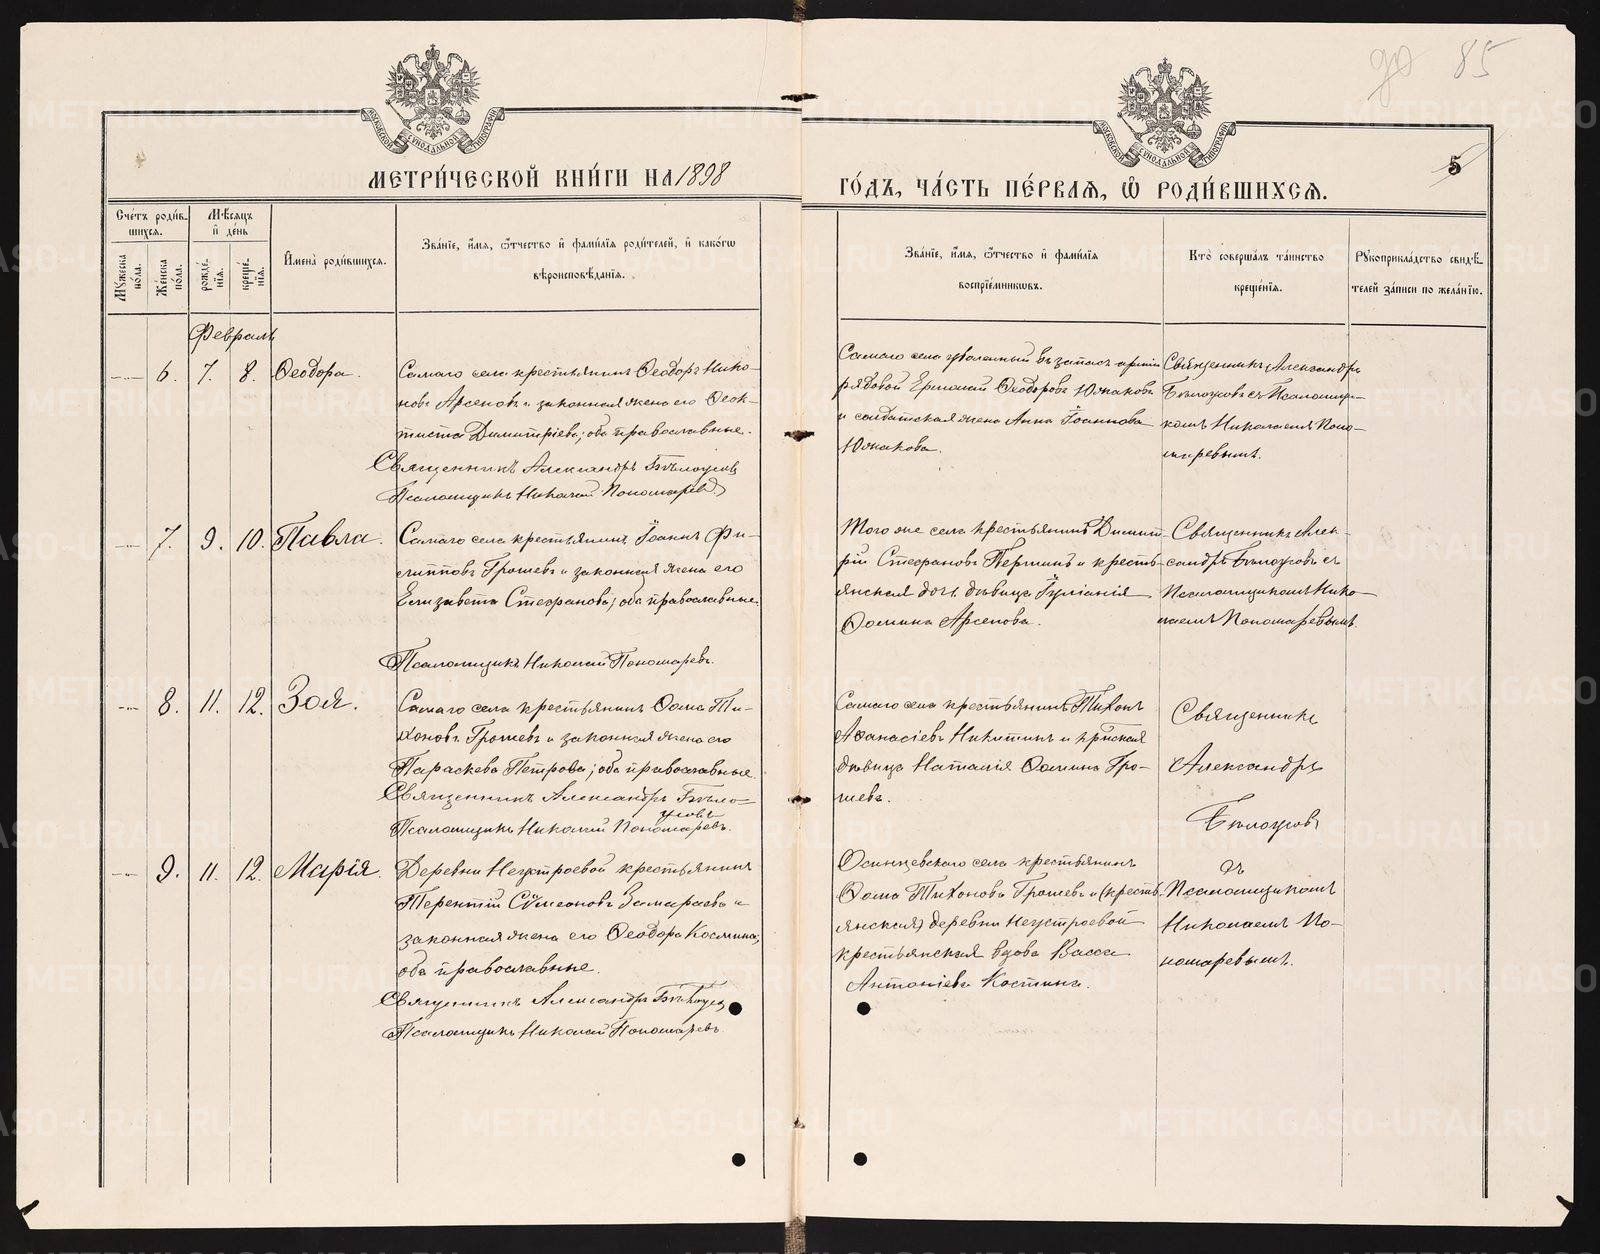 до 85
МОСКОВСКОЙ СѴНОДАЛЬНОЙ ТИПОГРАФІИ
МОСКОВСКОЙ СѴНОДАЛЬНОЙ ТИПОГРАФІИ
МЕТРИ́ЧЕСКОЙ КНИ́ГИ НА 1898
ГО́ДЪ, ЧА́СТЬ ПЕ́РВАЯ, Ѽ РОДИ́ВШИХСЯ.
5
Сче́тъ роди́в-
шихся.
Мꙋжеска по́ла.
Же́нска по́ла.
Мѣ́сяцъ и́ де́нь
рожде́нїя.
креще́нїя.
И́мена̀ роди́вшихся.
Зва́нїе, и́мя, ѻ҆́тчество и҆ фами́лїя роди́телей, и҆ како́гѡ
вѣроисповѣ́данїя.
Зва́нїе, и́мя, ѻ҆́тчество и҆ фами́лїя
воспрїе́мникѡвъ.
Кто̀ соверша́лъ та́инство
креще́нїя.
Рꙋкоприкла́дство свидѣ́-
телей за́писи по жела́нїю.
Февраль
6. 7. 8. Ѳеодора.
Самаго села крестьянинъ Ѳеодоръ Нико-
новъ Арсеновъ и законная жена его Ѳеок-
тиста Димитріева; оба православные.
Священникъ Александръ Бѣлоусовъ
Псаломщикъ Николай Пономаревъ
Самаго села уволенный въ запасъ арміи
рядовой Ермолай Ѳеодоровъ Южаковъ
и солдатская жена Анна Іоаннова
Южакова.
Священникъ Александръ
Бѣлоусовъ съ Псаломщи-
комъ Николаемъ Поно-
маревымъ.
7. 9. 10. Павла.
Самаго села крестьянинъ Іоаннъ Фи-
липповъ Грошевъ и законная жена его
Елизавета Стефанова; оба православные.
Псаломщикъ Николай Пономаревъ.
Того же села крестьянинъ Димит-
рій Стефановъ Першинъ и кресть-
янская дочь дѣвица Іуліанія
Ѳомина Арсенова.
Священникъ Алек-
сандръ Бѣлоусовъ съ
Псаломщикомъ Нико-
лаемъ Пономаревымъ.
8. 11. 12. Зоя.
Самаго села крестьянинъ Ѳома Ти-
хоновъ Грошевъ и законная жена его
Параскева Петрова; оба православные.
Священникъ Александръ Бѣло-
усовъ
Псаломщикъ Николай Пономаревъ.
Самаго села крестьянинъ Тихонъ
Аѳанасіевъ Никитинъ и кр҃тнская
дѣвица Наталія Ѳомина Гро-
шева.
Священникъ
Александръ
Бѣлоусовъ
9. 11. 12. Марія.
Деревни Неустроевой крестьянинъ
Терентій Сѵмеоновъ Замараевъ и
законная жена его Ѳеодора Космина;
оба православные.
Священникъ Александръ Бѣлоусовъ
Псаломщикъ Николай Пономаревъ
Осинцевскаго села крестьянинъ
Ѳома Тихоновъ Грошевъ и (кресть-
янская) деревни Неустроевой
крестьянская вдова Васса
Антоніева Костина.
съ
Псаломщикомъ
Николаемъ По-
номаревымъ.
METRIKI.GASO-URAL.RU